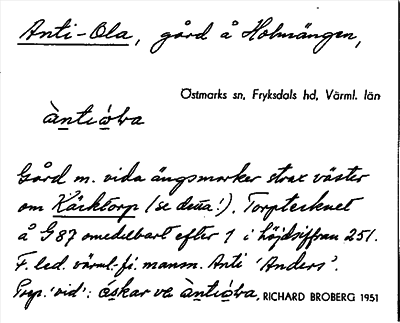 Anti-Ola, gård å Holmängen,
Östmarks sn, Fryksdals hd, Värml. län
àntióɫa
Gård m. vida ängsmarker strax väster
om Käcktorp (se detta!). Torptecknet
å G87 omedelbart efter 1 i höjdsiffran 251.
F. led. värml.-fi. mansn. Anti 'Anders'.
Prep. 'vid': óskar ve àntióɫa. RICHARD BROBERG 1951